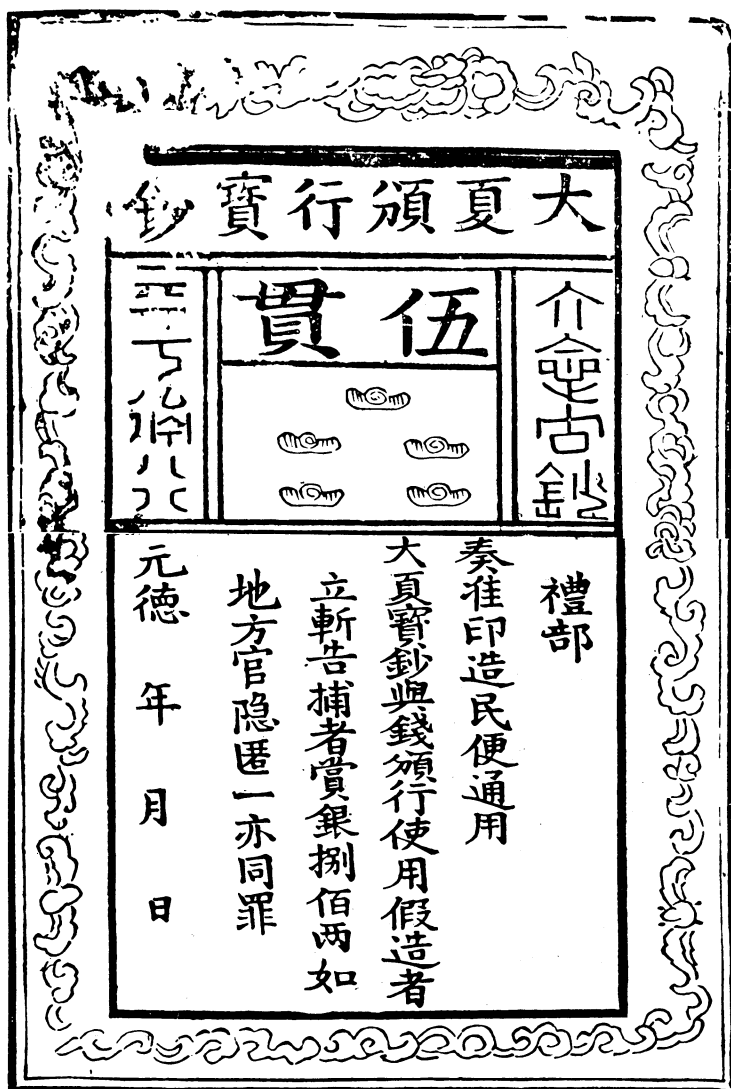 大夏頒行寶鈔
伍貫
禮部
奏准印造民便通用
大夏寶鈔與錢頒行使用假造者
立斬告捕者賞銀捌佰两如
地方官隐匿一亦同罪
元德 年 月 日